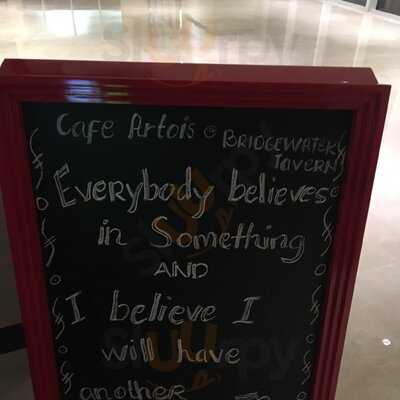 Cafe Artois @ BRIDGEWATER
TAVERN
Everybody believes
in Something
AND
I believe I
will have
another